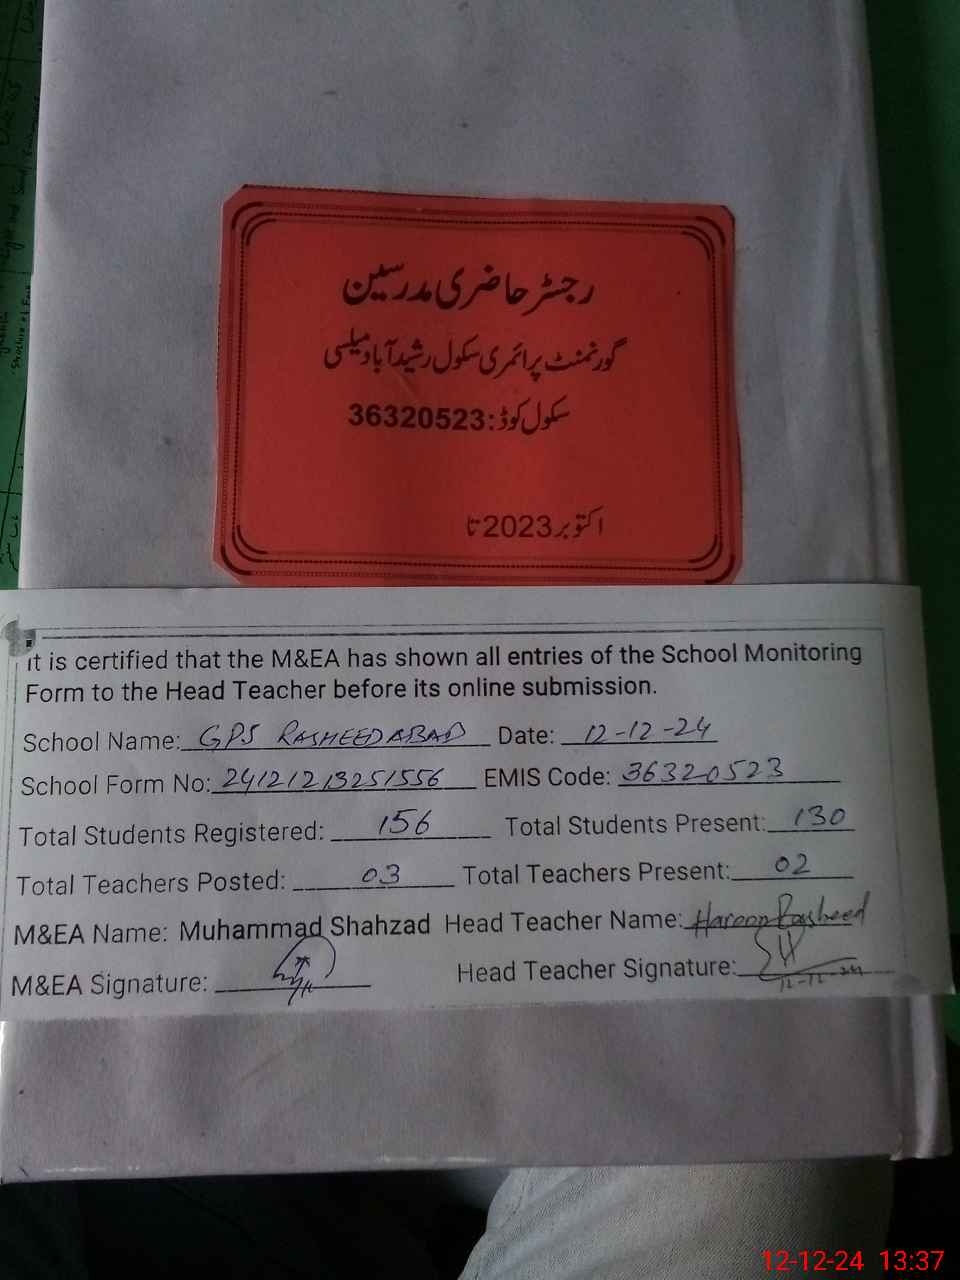 رجسٹر حاضری مدرسین
گورنمنٹ پرائمری سکول رشید آباد میلسی
سکول کوڈ: 36320523
اکتوبر 2023 تا
It is certified that the M&EA has shown all entries of the School Monitoring
Form to the Head Teacher before its online submission.
School Name: GPS RASHEEDABAD Date: 12-12-24
School Form No: 24121213251556 EMIS Code: 36320523
Total Students Registered: 156 Total Students Present: 130
Total Teachers Posted: 03 Total Teachers Present: 02
M&EA Name: Muhammad Shahzad Head Teacher Name: Haroon Rasheed
M&EA Signature: Head Teacher Signature:
12-12-24
12-12-24 13:37